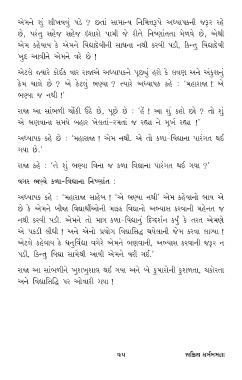 એમને શું શીખવવું પડે ? છતાં સામાન્ય નિમિત્તરૂપે અધ્યાપકની જરૂર રહે
છે, પરંતુ સહેજ સહેજ ઇશારો પામી જે રીતે નિષ્ણાતતા મેળવે છે, એથી
એમ કહેવાય કે એમને વિદ્યાદેવીની સાધના નથી કરવી પડી, કિન્તુ વિદ્યાદેવી
ખુદ આવીને એમને વરે છે !
એટલે જ્યારે કોઈક વાર રાજાએ અધ્યાપકને પૂછ્યું હશે કે લવણ અને અંકુશનું
કેમ ચાલે છે ? એ કેટલું ભણ્યા ? ત્યારે અધ્યાપક કહે : 'મહારાજા ! એ
ભણ્યા જ નથી !'
રાજા આ સાંભળી ચોંકી ઊઠે છે, પૂછે છે : 'હેં ! આ શું કહો છો ? તો શું
એ ભણવાના સમયે બહાર ખેલતા-રમતાં જ રહ્યા ને મૂર્ખ રહ્યા !'
અધ્યાપક કહે છે : 'મહારાજા ! એમ નથી. એ તો કળા-વિદ્યાના પારંગત થઈ
ગયા છે.'
રાજા કહે : 'તે શું ભણ્યા વિના જ કળા વિદ્યાના પારંગત થઈ ગયા ?'
વગર ભણ્યે કળા-વિદ્યાના નિષ્ણાત :
અધ્યાપક કહે : 'મહારાજા સાહેબ ! 'એ ભણ્યા નથી' એમ કહેવાનો ભાવ એ
છે કે એમને બીજા વિદ્યાર્થીઓની માફક વિદ્યાનો અભ્યાસ કરવાની મહેનત જ
નથી કરવી પડી. એમને તો માત્ર કળા-વિદ્યાનું દિગ્દર્શન કર્યું કે તરત એમણે
એ પકડી લીધી ! અને એનો પ્રયોગ વિદ્યાસિદ્ધ થયેલાની જેમ કરવા લાગ્યા !
એટલે કહેવાય કે ધનુર્વિદ્યા વગેરે એમને ભણવાની, અભ્યાસ કરવાની જરૂર ન
પડી, કિન્તુ વિદ્યા સામેથી આવી એમને વરી ગઈ.'
રાજા આ સાંભળીને ખુશખુશાલ થઈ ગયા અને બે કુમારોની કુશળતા, ચકોરતા
અને વિદ્યાસિદ્ધિ પર ઓવારી ગયા !